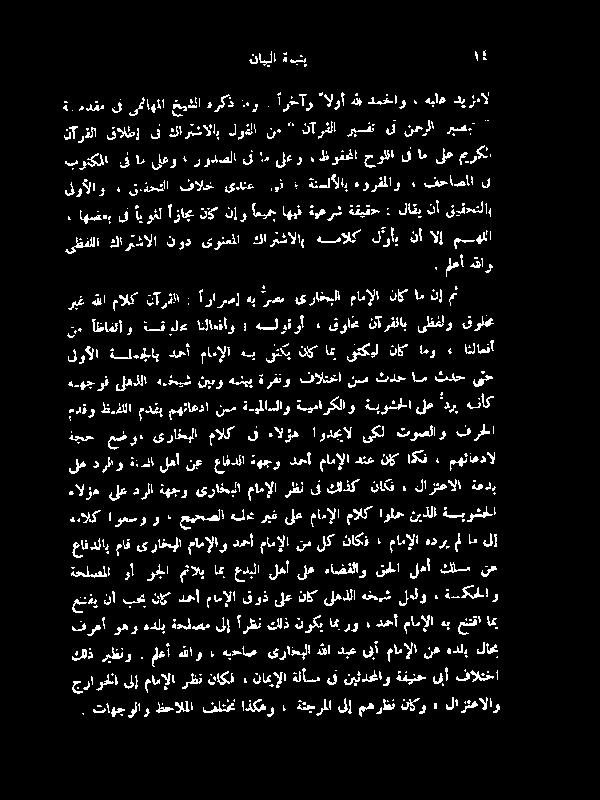 ١٤
يتيمة البيان
لامزيد عليه ، والحمد لله أولاً وآخراً . وما ذكره الشيخ المهائمى فى مقدمة
" تبصير الرحمن فى تفسير القرآن " من القول بالاشتراك فى إطلاق القرآن
الكريم على ما فى اللوح المحفوظ ، وعلى ما فى الصدور ، وعلى ما فى المكتوب
فى المصاحف ، والمقروء بالألسنة ؛ فهو عندى خلاف التحقيق ، والأولى
بالتحقيق أن يقال : حقيقة شرعية فيها جميعاً وإن كان مجازاً لغوياً فى بعضها ،
اللهم إلا أن يأوَّل كلامه بالاشتراك المعنوى دون الاشتراك اللفظى
والله أعلم .
ثم إن ما كان الإمام البخارى مصرٌّ به إصراراً : القرآن كلام الله غير
مخلوق ولفظى بالقرآن مخلوق ، أوقوله : وأفعالنا مخلوقة وألفاظنا من
أفعالنا ، وما كان ليكتفى بما كان يكتفى به الإمام أحمد بالجملة الأولى
حتى حدث ما حدث من اختلاف ونفرة بينه وبين شيخه الذهلى فوجهه
كأنه يردُّ على الحشوية والكرامية والسالمية من ادعائهم بقدم اللفظ وقدم
الحرف والصوت لكى لايجدوا هؤلاء فى كلام البخارى موضع حجة
لادعائهم ، فكما كان عند الإمام أحمد وجهة الدفاع عن أهل السنة والرد على
بدعة الاعتزال ، فكان كذلك فى نظر الإمام البخارى وجهة الرد على هؤلاء
الحشوية الذين حملوا كلام الإمام على غير محمله الصحيح ، ووسعوا كلامه
إلى ما لم يرده الإمام ، فكان كل من الإمام أحمد والإمام البخارى قام بالدفاع
عن مسلك أهل الحق والقضاء على أهل البدع بما يلائم الجو أو المصلحة
والحكمة ، ولعل شيخه الذهلى كان على ذوق الإمام أحمد كان يحب أن يقتنع
بما اقتنع به الإمام أحمد ، وربما يكون ذلك نظراً إلى مصلحة بلده وهو أعرف
بحال بلده من الإمام أبى عبد الله البخارى صاحبه ، والله أعلم . ونظير ذلك
اختلاف أبى حنيفة والمحدثين فى مسألة الإيمان ، فكان نظر الإمام إلى الخوارج
والاعتزال ، وكان نظرهم إلى المرجئة ، وهكذا تختلف الملاحظ والوجهات .